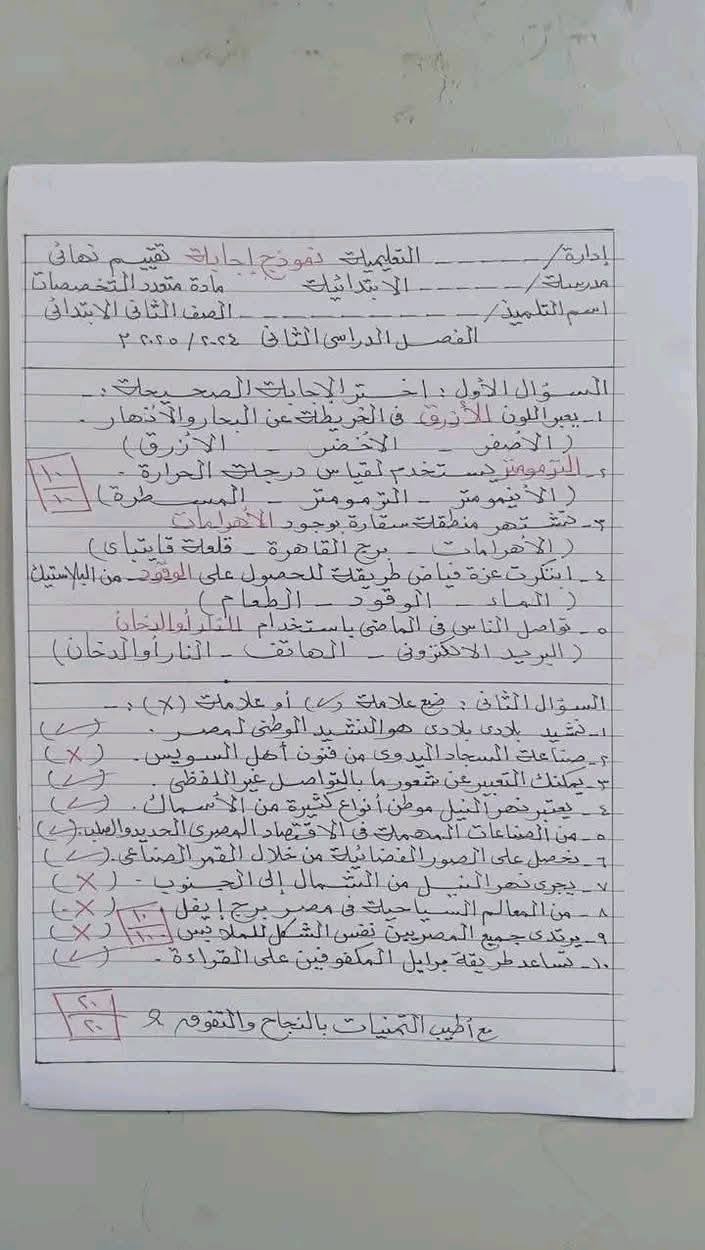 إدارة/ ------ التعليمية نموذج إجابة تقييم نهائى
مدرسة/ ------ الابتدائية مادة متعدد التخصصات
اسم التلميذ/ ------------ الصف الثانى الابتدائى
الفصل الدراسى الثانى ٢٠٢٤/٢٠٢٥ م
السؤال الأول: اختر الإجابة الصحيحة:-
١- يعبر اللون الأزرق فى الخريطة عن البحار والأنهار.
(الأصفر - الأخضر - الأزرق)
٢- الترمومتر يستخدم لقياس درجة الحرارة.
(الأنيمومتر - الترمومتر - المسطرة)
١٠
١٠
٣- تشتهر منطقة سقارة بوجود الأهرامات
(الأهرامات - برج القاهرة - قلعة قايتباى)
٤- ابتكرت عزة فياض طريقة للحصول على الوقود من البلاستيك
(الماء - الوقود - الطعام)
٥- تواصل الناس فى الماضى باستخدام النار أو الدخان
(البريد الالكترونى - الهاتف - النار أو الدخان)
السؤال الثانى: ضع علامة (✓) أو علامة (X):-
١- نشيد بلادى بلادى هو النشيد الوطنى لمصر. (✓)
٢- صناعة السجاد اليدوى من فنون أهل السويس. (X)
٣- يمكنك التعبير عن شعور ما بالتواصل غير اللفظى. (✓)
٤- يعتبر نهر النيل موطن أنواع كثيرة من الأسماك. (✓)
٥- من الصناعات المهمة فى الاقتصاد المصرى الحديد والصلب. (✓)
٦- نحصل على الصور الفضائية من خلال القمر الصناعى. (✓)
٧- يجرى نهر النيل من الشمال إلى الجنوب. (X)
٨- من المعالم السياحية فى مصر برج إيفل. (X)
٩- يرتدى جميع المصريين نفس الشكل للملابس (X)
١٠
١٠
١٠- تساعد طريقة برايل المكفوفين على القراءة. (✓)
مع أطيب التمنيات بالنجاح والتفوق
٢٠
٢٠